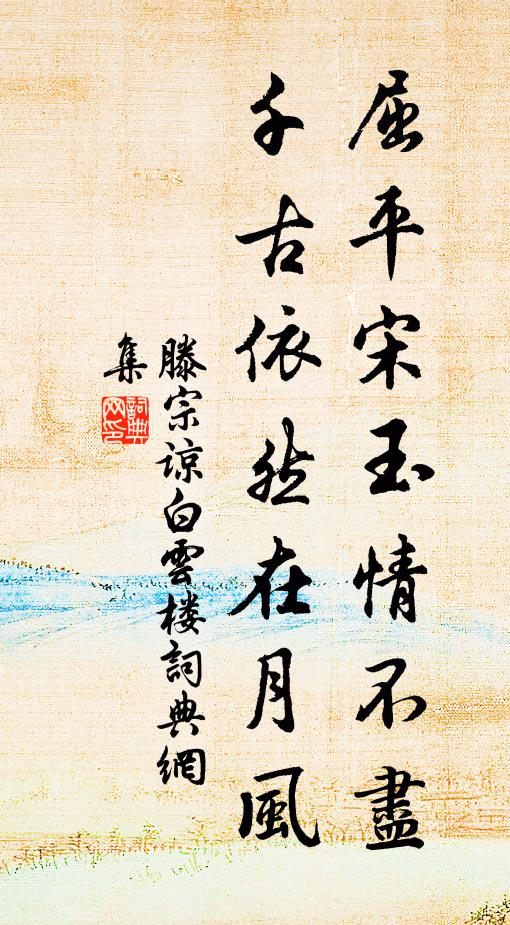 屈平宋玉情不盡
千古依然在月風
滕宗諒白雲楼詞典網
集
詞典网印